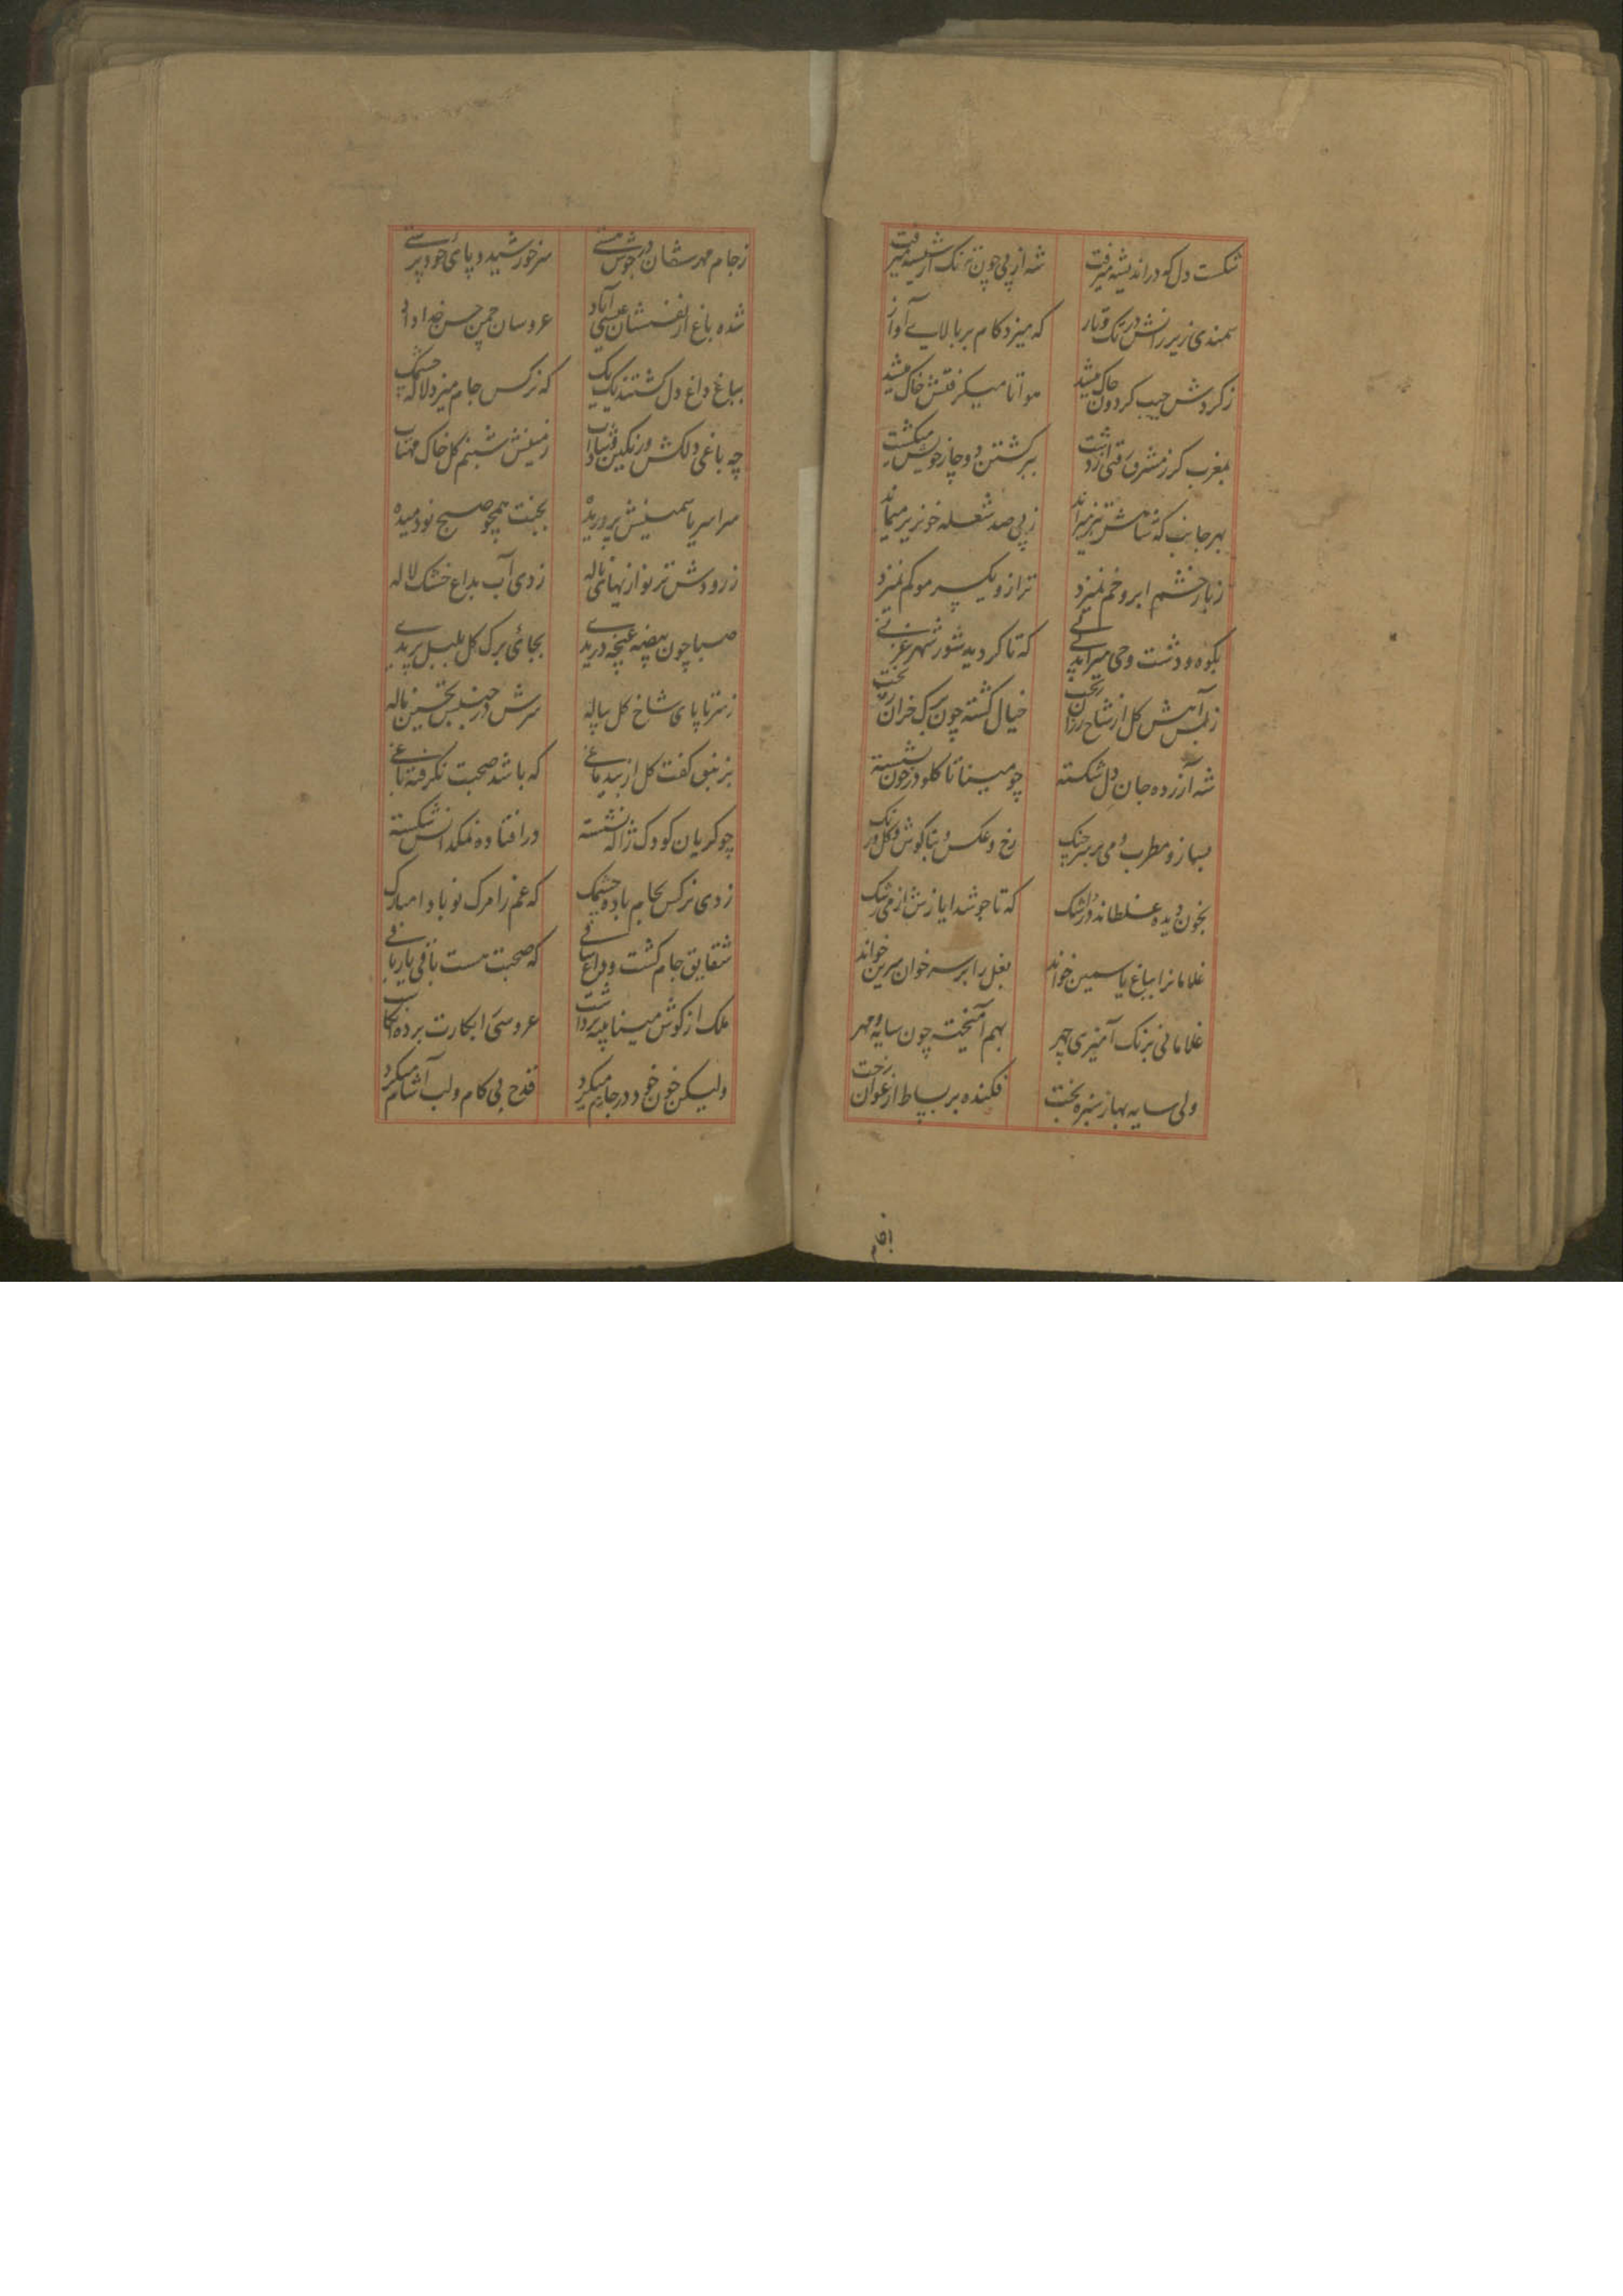 شکست دل که در اندیشه میرفت شه از پی چون ترنک از شیشه میرفت
سمندی زیر رانش در تک و تاز که میزد کام بر بالای آواز
ز کردش جیب کردون چاک میشد هوا تا میکرفتش خاک میشد
بمغرب کر ز مشرق رفتی از دشت ببرکشتن دوچار خویش میکشت
بهر جانب که شاهش تیز میراند ز پی صد شعله خونریز میماند
ز بار خشم ابرو خم نمیزد ترازو یکسر مو کم نمیزد
بکوه و دشت وحی میراند که تا کردید شور شهر غزنی
ز آهش کل از شاخ رزان ریخت خیال کشته چون برک خزان ریخت
شه آزرده جان دل شکسته چو مینا تا کلو در خون نشسته
بساز و مطرب و می بر سر جنک رخ و عکس و بناکوش و کل و رنک
بخون دیده غلطاند در اشک که تا جوشد ایازش از می رشک
غلامانرا بباغ یاسمین خواند بغل را بر سر خوان سرین خواند
غلامانی برنک آمیزی چهر بهم آمیخته چون سایه و مهر
ولی سایه بهار سبزه بخت فکنده بر بساط ارغوان رخت
ز جام مهرشان در جوش مستی سر خورشید و پای خود پرستی
شده باغ از نفسشان عیسی آباد عروسان چمن حسن خداداد
بباغ داغ دل کشتند یک یک که نرکس جام میزد لاله چشمک
چه باغی دلکش و رنکین و شاداب زمینش شبنم کل خاک مهتاب
سراسر یاسمینش پروریده بجنت همچو صبح نو دمیده
ز رودش تر نوازیهای ناله زدی آب بداغ خشک لاله
صبا چون بیضه غنچه دریدی بجای برک کل بلبل پریدی
ز سر تا پای شاخ کل پیاله سرش در جنبش تحسین ناله
بزنبق کفت کل از بیدماغی که باشد صحبت نکرفته باغی
چو کریان کودک ژاله نشسته در افتاده نمکدانش شکسته
زدی نرکس بجام باده چشمک که غم را مرک نو بادا مبارک
شقایق جام کشت و داغ ساقی که صحبت هست باقی یار باقی
ملک از کوش مینا پنبه برداشت
ولیکن خون خود در جام میکرد قدح بی کام و لب آشام میکرد